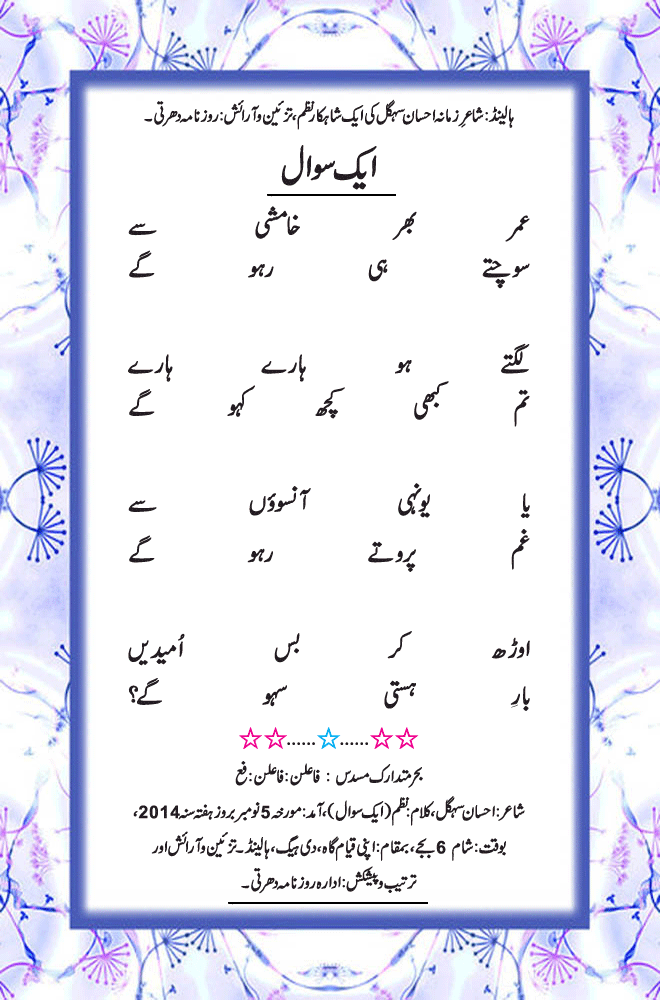 ہالینڈ: شاعرِ زمانہ احسان سہگل کی ایک شاہکار نظم، تزئین و آرائش: روزنامہ دھرتی۔
ایک سوال
عمر بھر خامشی سے
سوچتے ہی رہو گے
لگتے ہو ہارے ہارے
تم کبھی کچھ کہو گے
یا یونہی آنسوؤں سے
غم پروتے رہو گے
اوڑھ کر بس اُمیدیں
بارِ ہستی سہو گے؟
☆☆......☆......☆☆
بحر متدارک مسدس : فاعلن: فاعلن: فع
شاعر: احسان سہگل، کلام: نظم (ایک سوال)، آمد: مورخہ 5 نومبر بروز ہفتہ سنہ 2014،
بوقت: شام 6 بجے، بمقام: اپنی قیام گاہ، دی ہیگ، ہالینڈ۔ تزئین و آرائش اور
ترتیب و پیشکش: ادارہ روزنامہ دھرتی۔